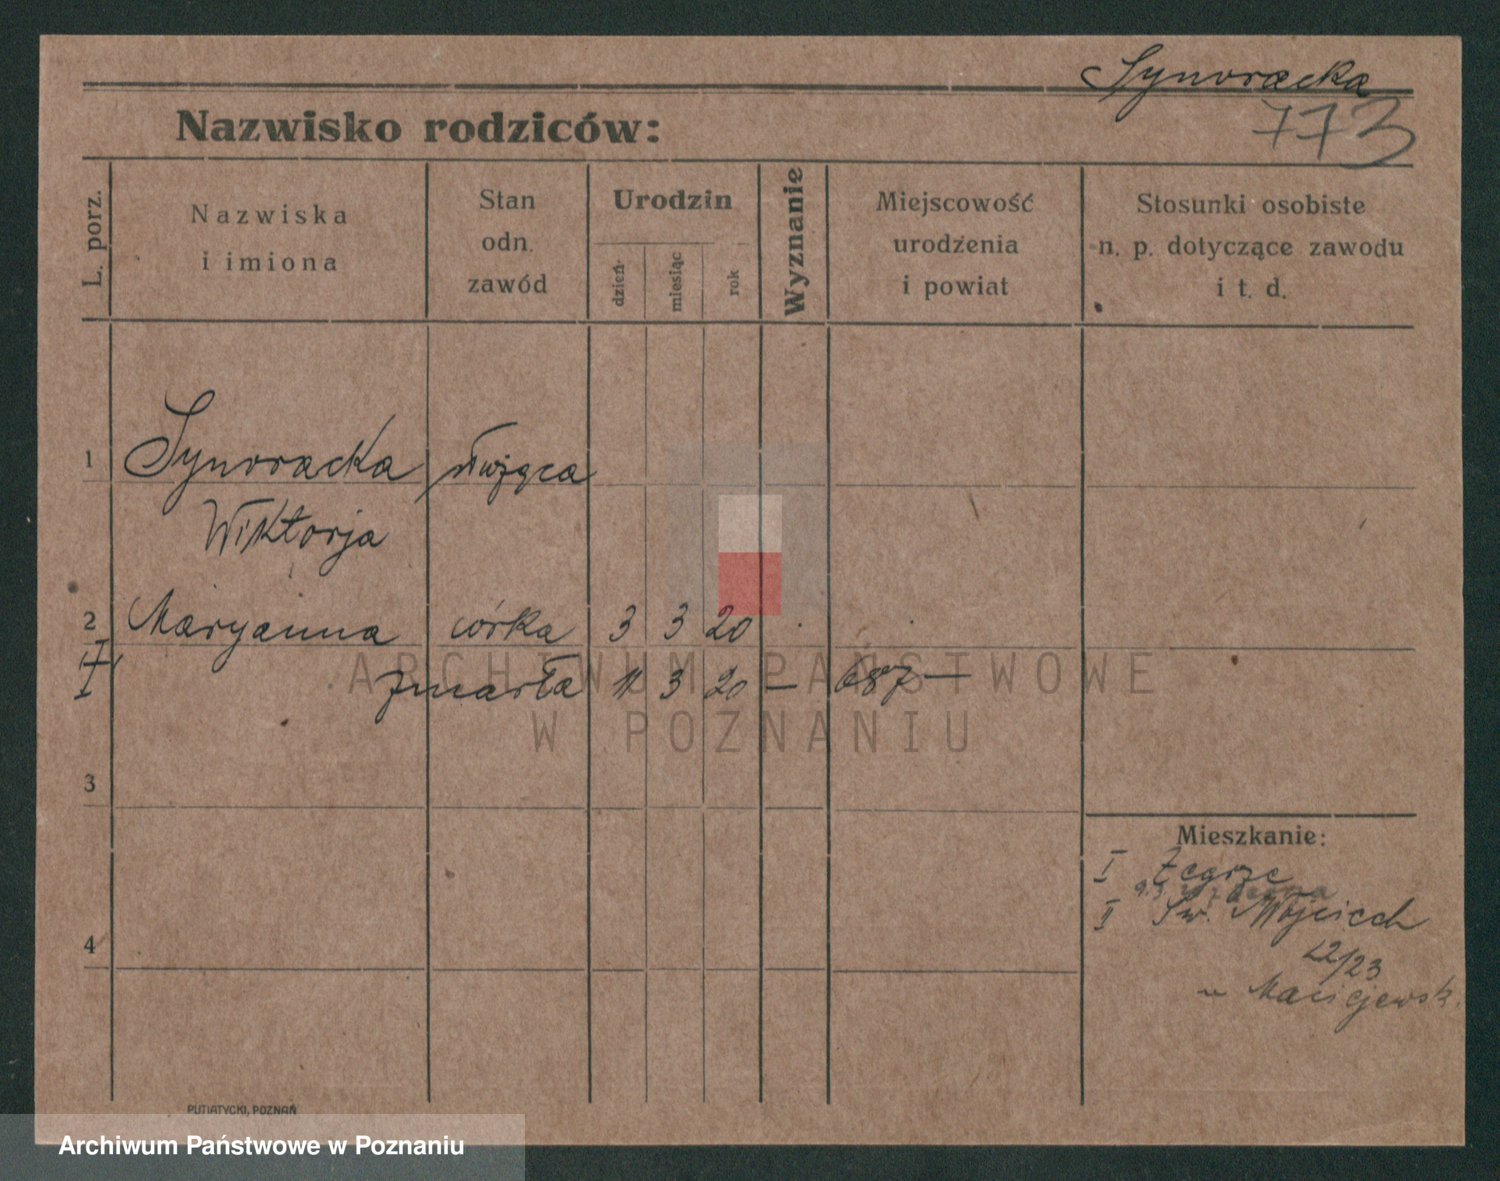 Synoracka
Nazwisko rodziców:
773
L. porz.
Nazwiska
i imiona
Stan
odn.
zawód
Urodzin
dzień
miesiąc
rok
Wyznanie
Miejscowość
urodzenia
i powiat
Stosunki osobiste
n. p. dotyczące zawodu
i t. d.
1 Synoracka służąca
Wiktorja
2 Maryanna córka 3 3 20
zmarła 11 3 20 — 687 —
3
4
Mieszkanie:
I Zegrze
II Św. Wojciech
22/23
u Maciejewsk.
ARCHIWUM PAŃSTWOWE
W POZNANIU
PUTIATYCKI, POZNAŃ
Archiwum Państwowe w Poznaniu